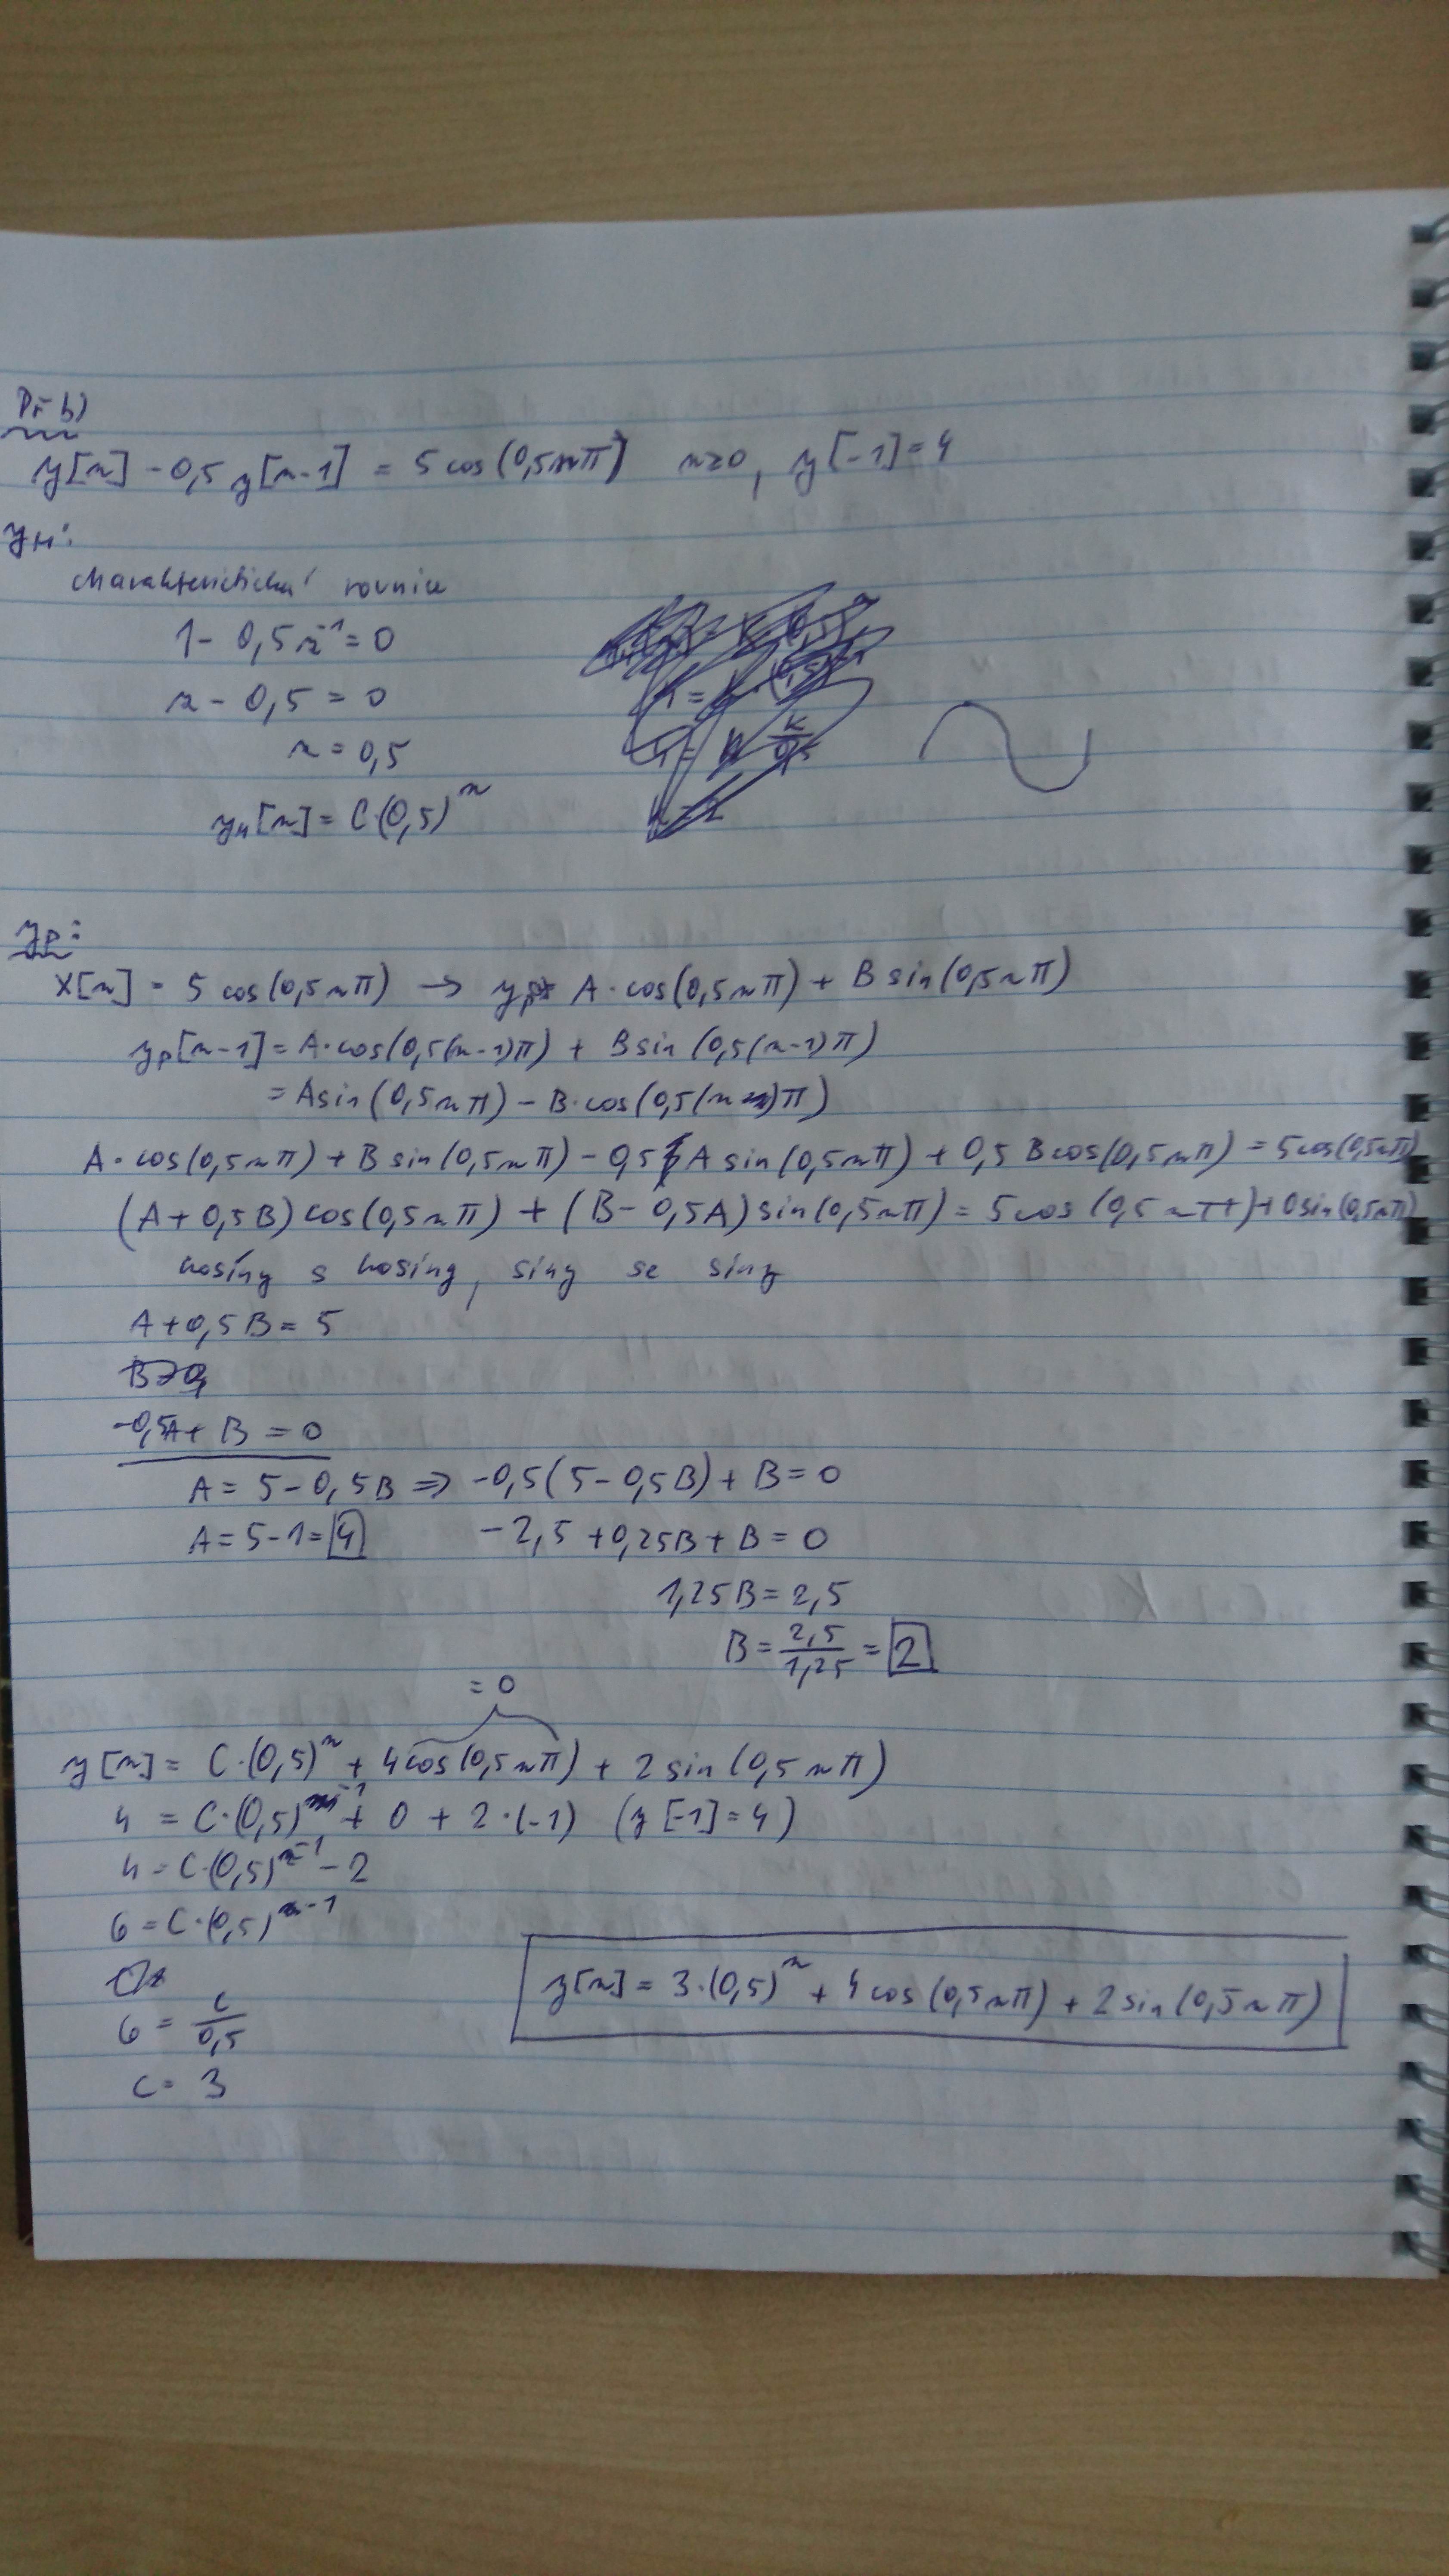 Př b)
y[n] - 0,5 y[n-1] = 5 cos(0,5nπ) n≥0, y[-1] = 4
yH:
charakteristická rovnice
1 - 0,5z⁻¹ = 0
z - 0,5 = 0
z = 0,5
yH[n] = C·(0,5)ⁿ
yP:
x[n] = 5 cos(0,5nπ) → yP A·cos(0,5nπ) + B sin(0,5nπ)
yP[n-1] = A·cos(0,5(n-1)π) + B sin(0,5(n-1)π)
= A sin(0,5nπ) - B·cos(0,5(n)π)
A·cos(0,5nπ) + B sin(0,5nπ) - 0,5 A sin(0,5nπ) + 0,5 B cos(0,5nπ) = 5cos(0,5nπ)
(A+0,5B) cos(0,5nπ) + (B-0,5A) sin(0,5nπ) = 5cos(0,5nπ) + 0sin(0,5nπ)
kosíny s kosiny, siny se siny
A + 0,5B = 5
-0,5A + B = 0
A = 5 - 0,5B ⇒ -0,5(5 - 0,5B) + B = 0
A = 5 - 1 = 4 -2,5 + 0,25B + B = 0
1,25B = 2,5
B = 2,5/1,25 = 2
= 0
y[n] = C·(0,5)ⁿ + 4cos(0,5nπ) + 2 sin(0,5nπ)
4 = C·(0,5)⁻¹ + 0 + 2·(-1) (y[-1] = 4)
4 = C·(0,5)⁻¹ - 2
6 = C·(0,5)⁻¹
6 = C/0,5
C = 3
y[n] = 3·(0,5)ⁿ + 4cos(0,5nπ) + 2 sin(0,5nπ)